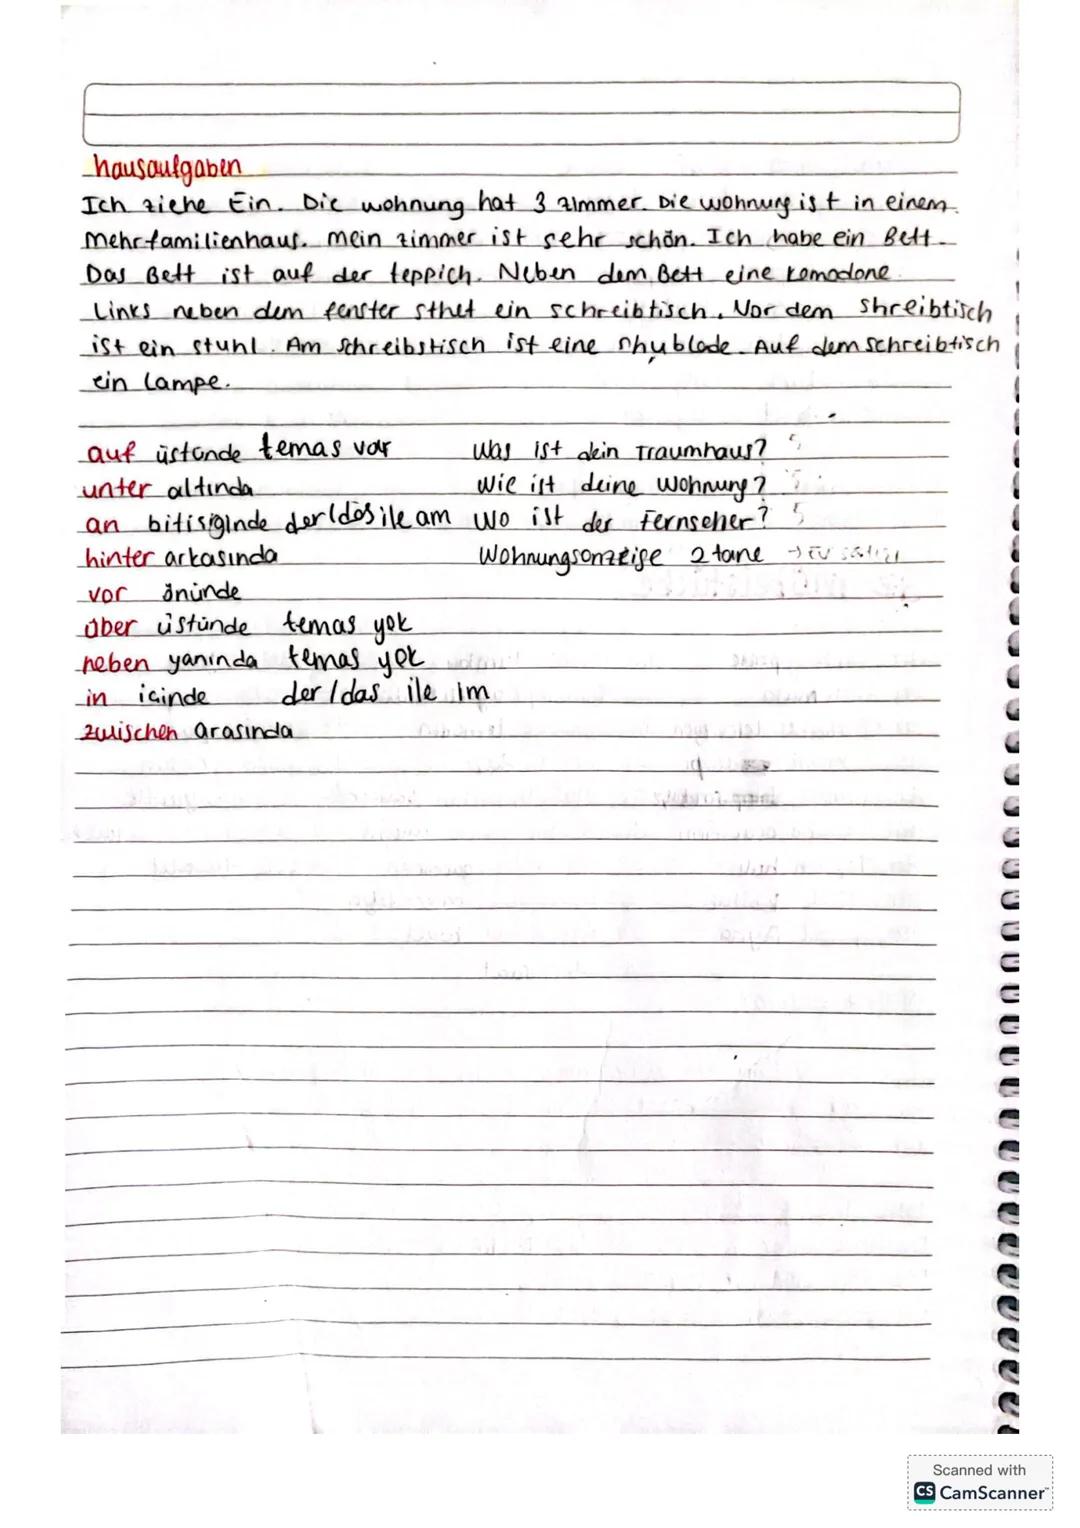 hausaufgaben
Ich ziehe Ein. Die wohnung hat 3 zimmer. Die wohnung ist in einem
Mehrfamilienhaus. Mein zimmer ist sehr schön. Ich habe ein Bett.
Das Bett ist auf der teppich. Neben dem Bett eine komodone
Links neben dem fenster sthet ein schreibtisch. Vor dem Shreibtisch
ist ein stuhl. Am Schreibstisch ist eine shublade. Auf dem schreibtisch
ein lampe.
auf üstünde temas var
unter altında
an bitişiğinde der/das ile am
hinter arkasında
vor önünde
über üstünde temas yok
neben yanında temas yok
in içinde der/das ile im
zwischen arasında
Was ist dein Traumhaus? 5
Wie ist deine Wohnung? 5
Wo ist der Fernseher? 5
Wohnungsanzeige 2 tane →
Scanned with
CS CamScanner